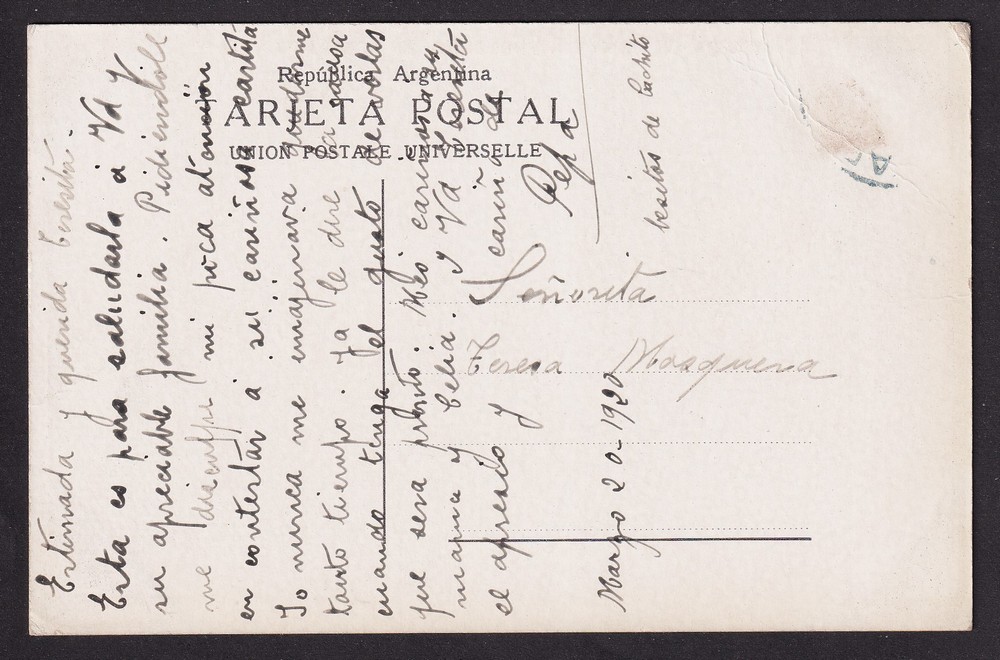 República Argentina
TARJETA POSTAL
UNION POSTALE UNIVERSELLE
Estimada y querida Teresita.
Esta es para saludarla á Vd y
su apreciable familia. Pidiendole
me disculpe mi poca atención
en contestar a sú cariñosa cartita
Yo nunca me imaginava
tanto tiempo. Ya le dire la causa
cuando tenga el gusto de verlas
que sera pronto. Mis cariños a su
mama y Celia. y Vd Teresita
el aprecio y cariño de
Pepa
Señorita
Teresa Mosquera
Marzo 20-1920
besitos de